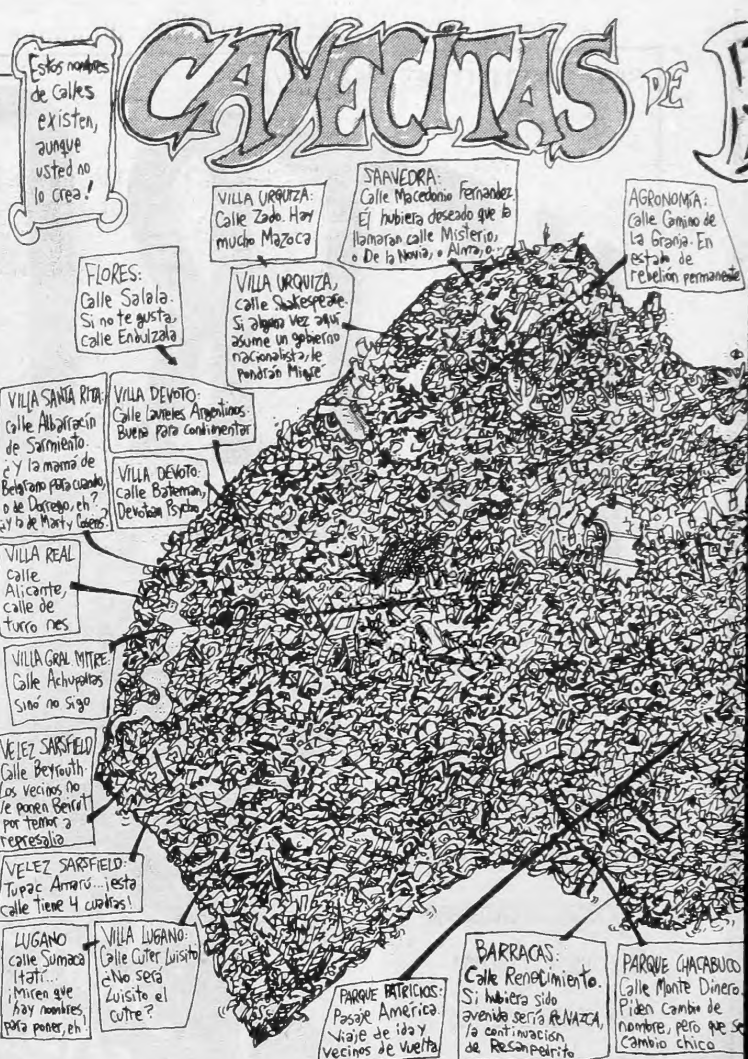 Estos nombres
de calles
existen,
aunque
usted no
lo crea!
CAYECITAS DE
VILLA URQUIZA:
Calle Zado. Hay
mucho Mazoca
SAAVEDRA:
Calle Macedonio Fernandez.
Él hubiera deseado que la
llamaran calle Misterio,
o De la Novia, o Alma, o...
AGRONOMÍA:
Calle Camino de
La Granja. En
estado de
rebelión permanente
FLORES:
Calle Salala.
Si no te gusta,
calle Endulzala
VILLA URQUIZA,
calle Shakespeare.
Si alguna vez aquí
asume un gobierno
nacionalista, le
pondrán Migré
VILLA SANTA RITA:
calle Albarracín
de Sarmiento.
¿Y la mamá de
Belgrano para cuando,
o de Dorrego, eh?
¿y la de Marty Cosens?
VILLA DEVOTO:
Calle Laureles Argentinos.
Buena para condimentar
VILLA DEVOTO:
calle Bateman,
Devotian Psycho
VILLA REAL
Calle
Alicante,
calle de
turro nes
VILLA GRAL MITRE:
Calle Achupallas
Sinó no sigo
VELEZ SARSFIELD
Calle Beyrouth.
Los vecinos no
le ponen Beirut
por temor a
represalia
VELEZ SARSFIELD:
Tupac Amarú...¡esta
calle tiene 4 cuadras!
LUGANO
calle Sumaca
Itatí...
¡Miren que
hay nombres
para poner, eh!
VILLA LUGANO:
Calle Cuter Luisito
¿No será
Luisito el
cutre?
PARQUE PATRICIOS:
Pasaje América.
Viaje de ida y
vecinos de vuelta
BARRACAS:
Calle Renacimiento.
Si hubiera sido
avenida sería ReNAZCA,
la continuación
de Resanpedrito
PARQUE CHACABUCO
Calle Monte Dinero.
Piden cambio de
nombre, pero que se
cambio chico